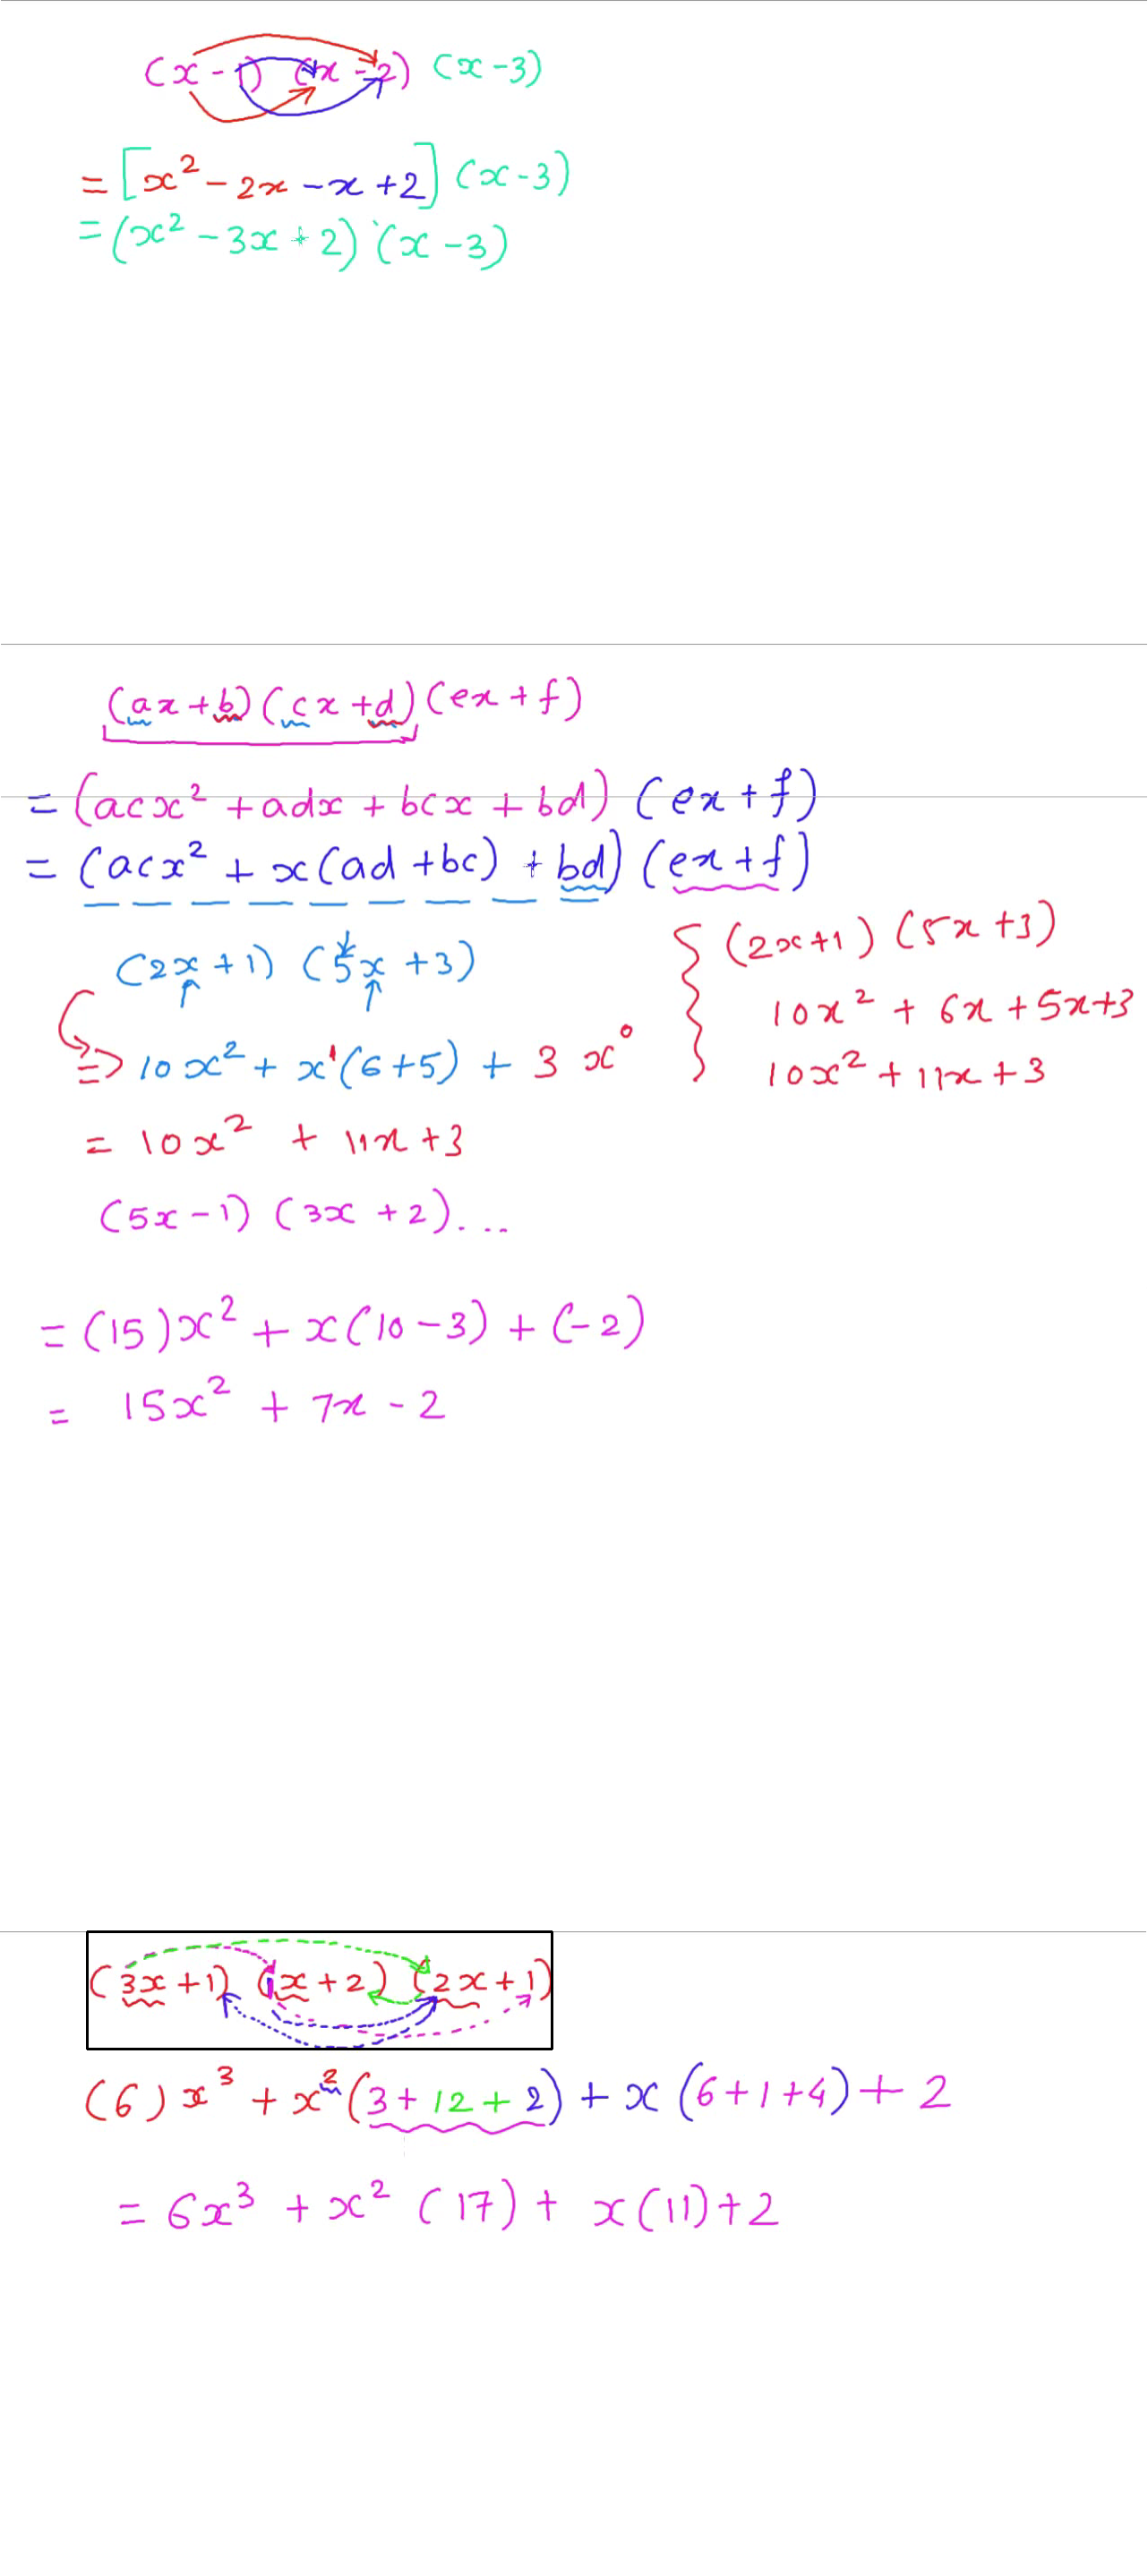 (x - 1) (x - 2) (x - 3)
= [x² - 2x - x + 2] (x - 3)
= (x² - 3x + 2) (x - 3)
(ax + b) (cx + d) (ex + f)
= (acx² + adx + bcx + bd) (ex + f)
= (acx² + x(ad + bc) + bd) (ex + f)
(2x + 1) (5x + 3)
=> 10x² + x¹(6 + 5) + 3x⁰
= 10x² + 11x + 3
{ (2x + 1) (5x + 3)
10x² + 6x + 5x + 3
10x² + 11x + 3
(5x - 1) (3x + 2)...
= (15)x² + x(10 - 3) + (-2)
= 15x² + 7x - 2
(3x + 1) (1x + 2) (2x + 1)
(6)x³ + x²(3 + 12 + 2) + x(6 + 1 + 4) + 2
= 6x³ + x²(17) + x(11) + 2